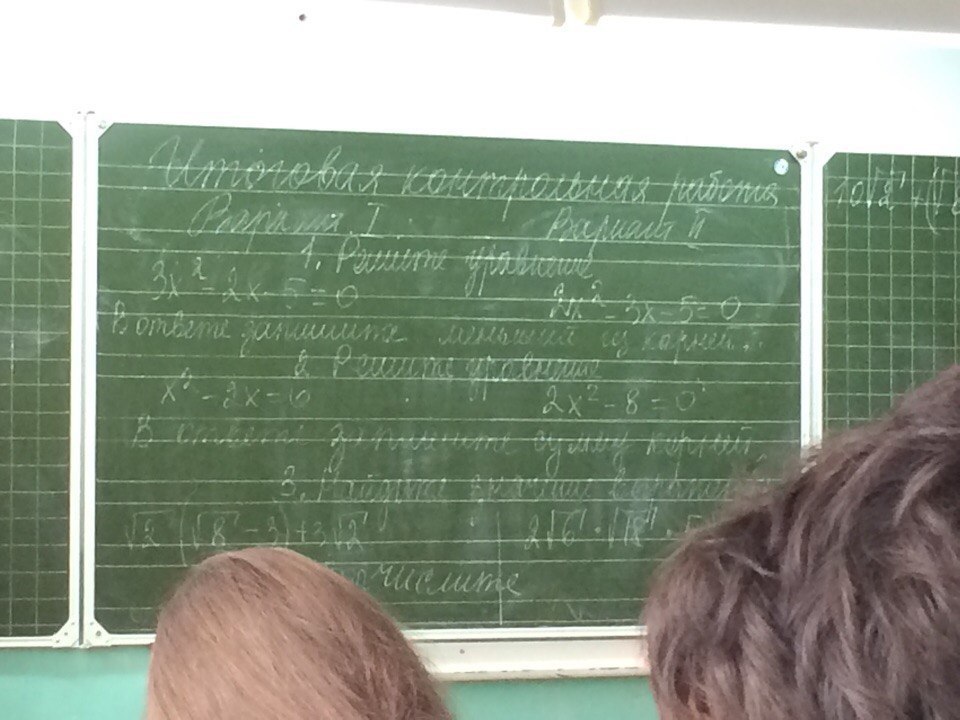 Итоговая контрольная работа
Вариант I Вариант II
1. Решите уравнение
3x² - 2x - 5 = 0 2x² - 3x - 5 = 0
В ответе запишите меньший из корней.
2. Решите уравнение
x² - 3x = 0 2x² - 8 = 0
В ответе запишите сумму корней
3. Найдите значение
√2 (√8 - 3) + 3√2 2√6 · √18 ·
числите
10√2 + (√8